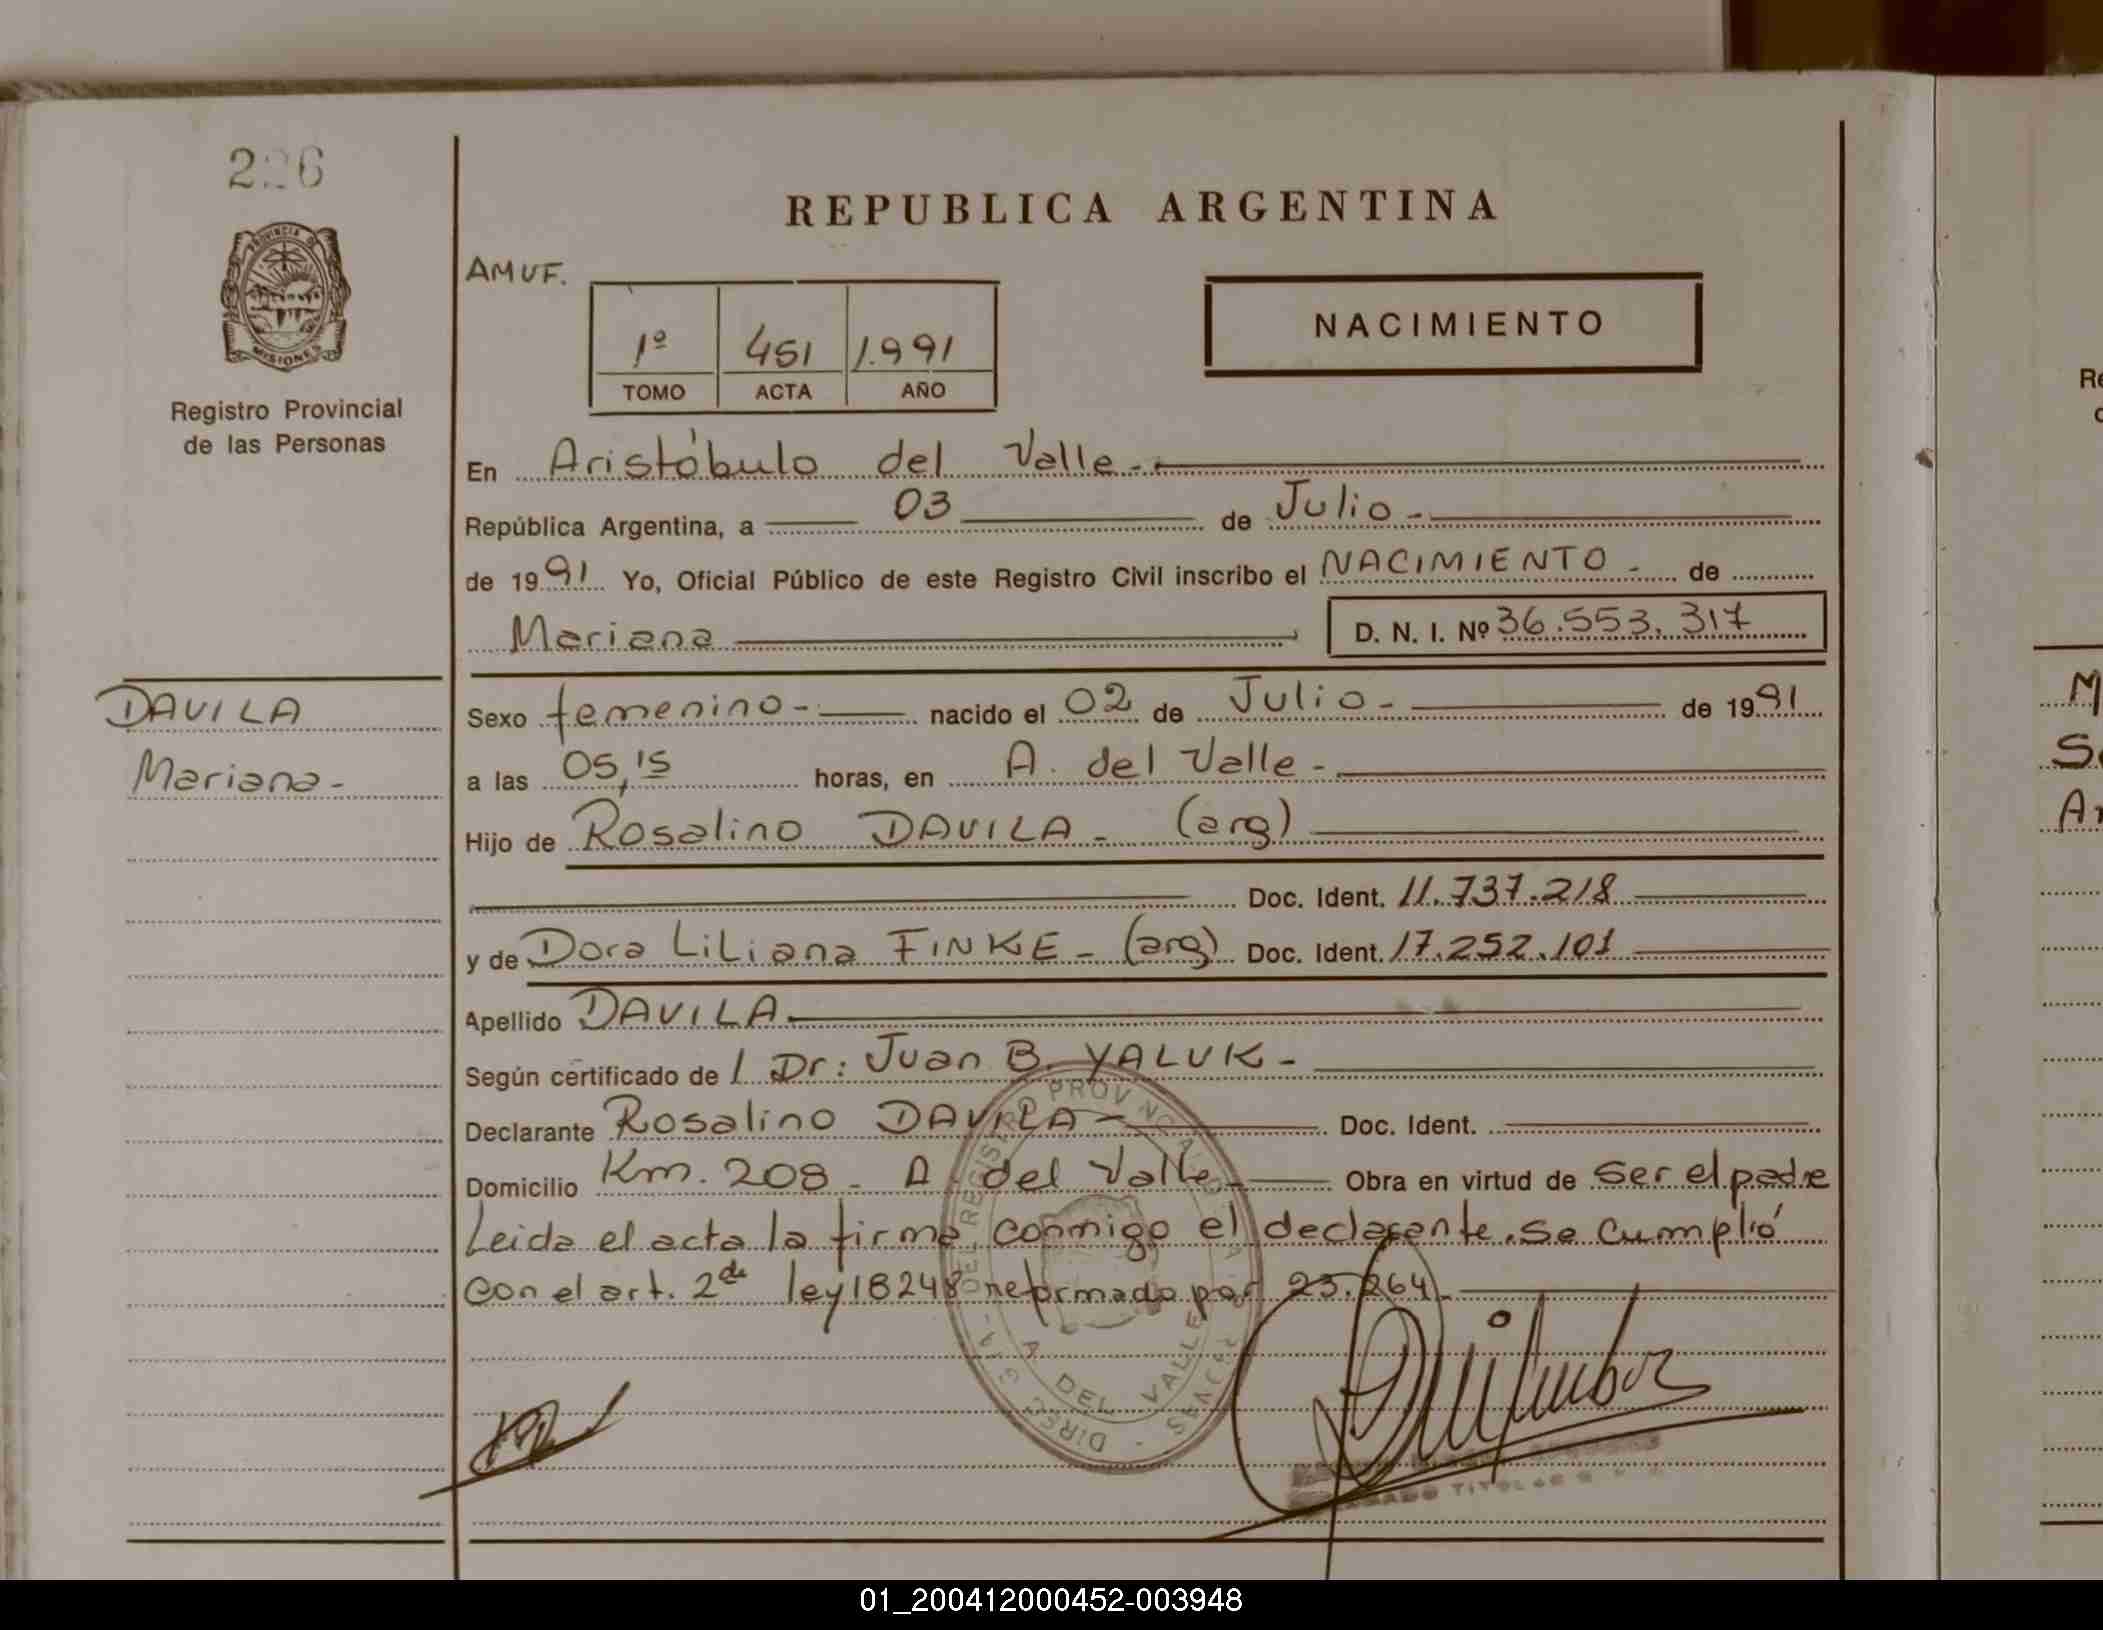 REPUBLICA ARGENTINA
PROVINCIA DE
MISIONES
Registro Provincial
de las Personas
AMUF.
1º 451 1.991
TOMO ACTA AÑO
NACIMIENTO
En Aristóbulo del Valle.-
República Argentina, a 03 de Julio -
de 1991 Yo, Oficial Público de este Registro Civil inscribo el NACIMIENTO - de
Mariana D. N. I. Nº 36.553.317
DAVILA
Mariana-
Sexo femenino- nacido el 02 de Julio - de 1991
a las 05,15 horas, en A. del Valle -
Hijo de Rosalino DAVILA - (arg)
Doc. Ident. 11.737.218
y de Dora LiLiana FINKE - (arg) Doc. Ident. 17.252.101
Apellido DAVILA
Según certificado de / Dr: Juan B. YALUK -
Declarante Rosalino DAVILA - Doc. Ident.
Domicilio Km. 208 - A. del Valle - Obra en virtud de ser el padre
Leida el acta la firma conmigo el declarante. Se cumplió
con el art. 2de ley 18248 reformado por 23.264-
A DEL VALLE
01_200412000452-003948